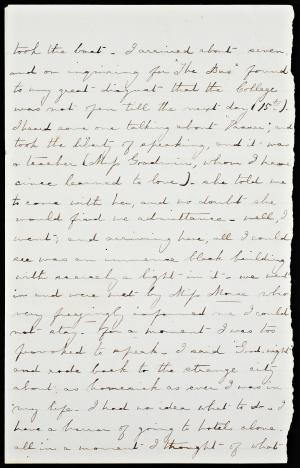 took the boat - I arrived about seven
and on inquiring for "The Bus" found
to my great disgust that the College
was not open till the next day (15th).
I heard some one talking about "Vassar", and
took the liberty of speaking, and it was
a teacher (Miss Goodwin, whom I have
since learned to love). she told me
to come with her, and no doubt she
would find me admittance - well, I
went, and arriving here, all I could
see was an immense black building
with scarcely a light in it - we went
in and were met by Miss Morse who
very freezingly informed me I could
not stay - for a moment I was too
provoked to speak - I said Good-night
and rode back to the strange city
about as homesick as ever I was in
my life. I had no idea what to do - I
have a horror of going to hotels alone.
all in a moment I thought of what